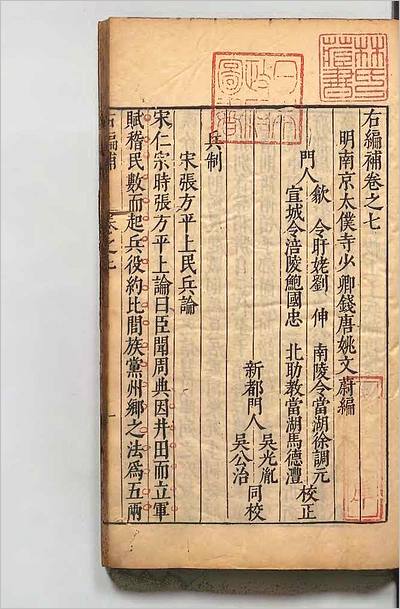 右編補卷之七
明南京太僕寺少卿錢唐姚文蔚編
門人歙令旴姥劉伸 南陵令當湖徐調元
宣城令涪陵鮑國忠 北助教當湖馬德灃 校正
新都門人吳光胤
吳公治 同校
兵制
宋張方平上民兵論
宋仁宗時張方平上論曰臣聞周典因井田而立軍
賦稽民數而起兵役約比閭族黨州鄉之法爲五兩
右編補 卷之七 一
林氏藏書
圖書